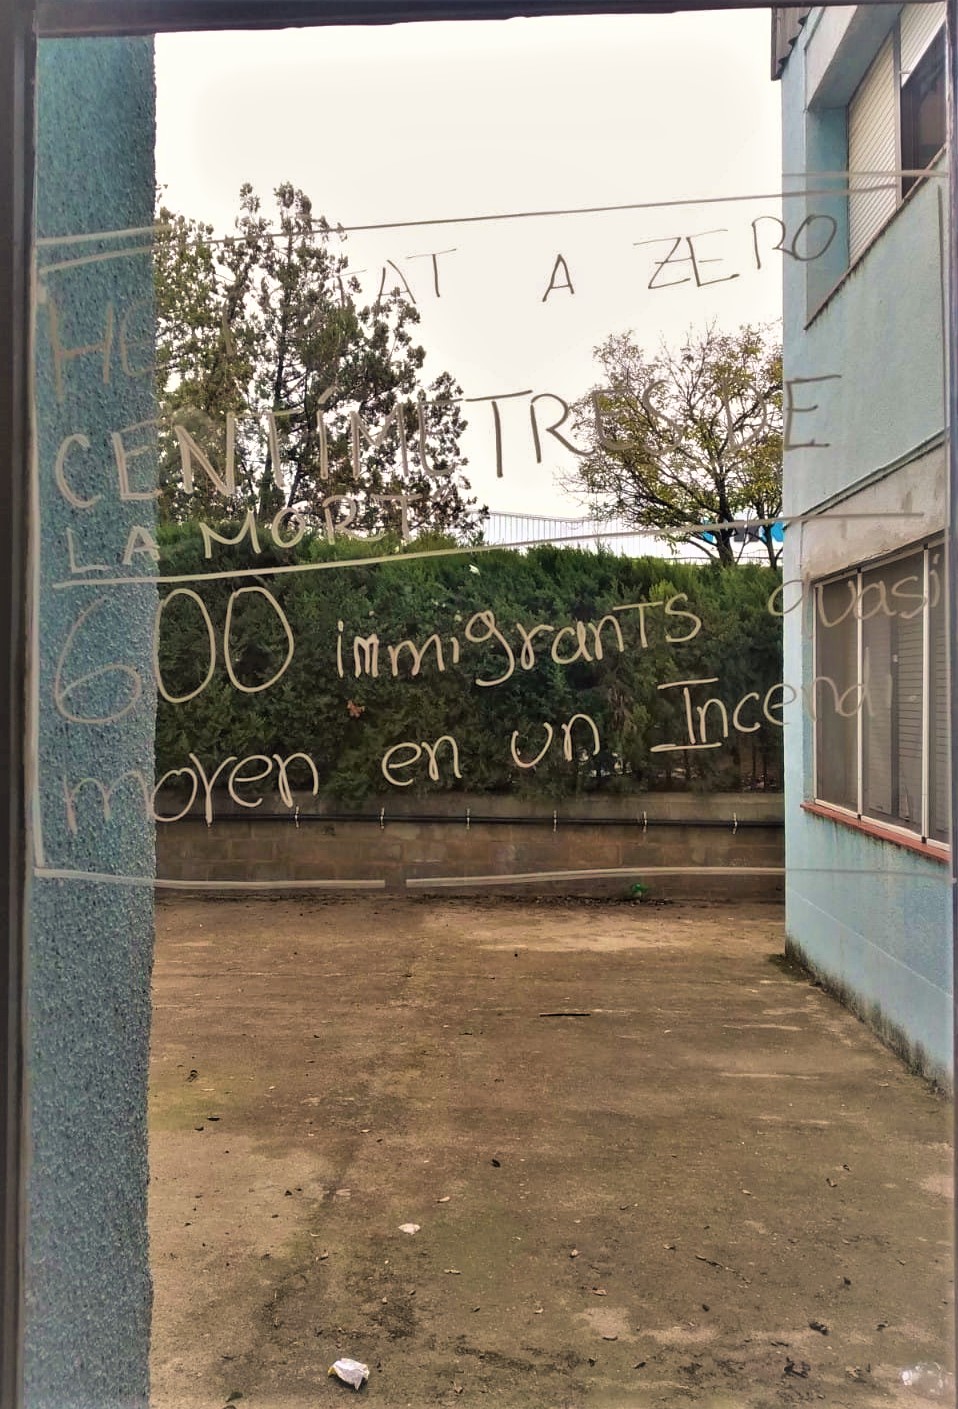 A ZERO
CENTÍMETRES DE
LA MORT"
600 immigrants quasi
moren en un Incendi